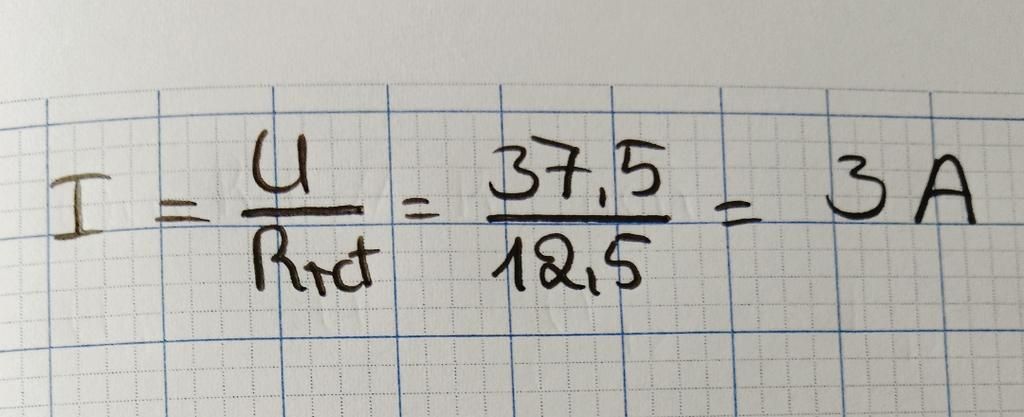 I = U / Rrct = 37,5 / 12,5 = 3 A